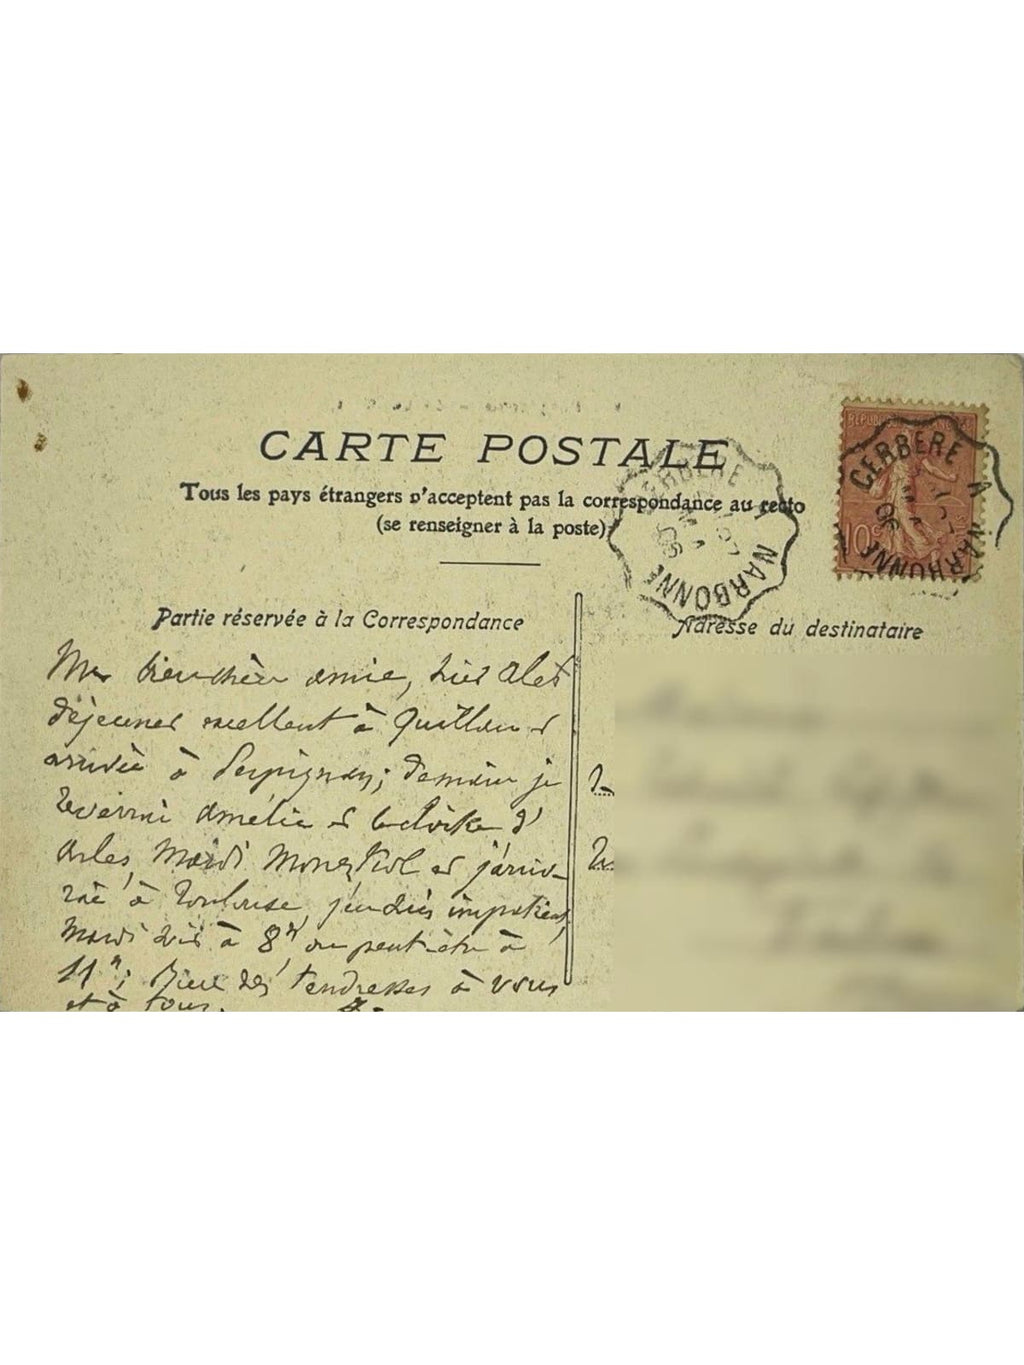 CARTE POSTALE
Tous les pays étrangers n'acceptent pas la correspondance au recto
(se renseigner à la poste)
CERBERE A NARBONNE
06
REPUBLIQUE
10c
CERBERE A NARBONNE
06
Partie réservée à la Correspondance
Ma bien chère amie, hier Alet
déjeuner excellent à Quillan et
arrivée à Perpignan; demain je
reverrai Amélie et le cloître d'
Arles, Mardi et j'arrive-
rai à Toulouse, j'en suis impatient,
Mardi soir à 8h ou peut-être à
11h; Bien des tendresses à vous
et à tous.
Adresse du destinataire